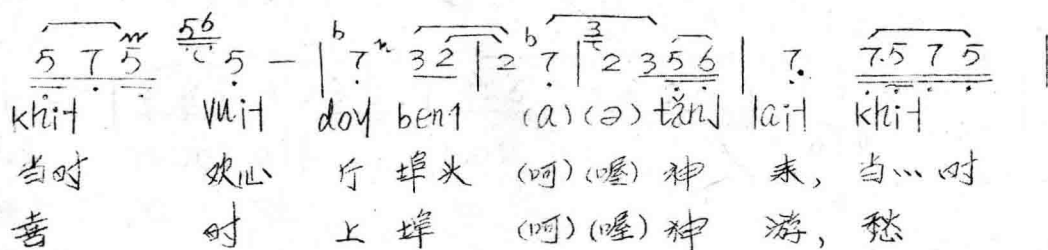 5 7 5 56 5 — | b7 3 2 | 2 b7 | 3 2 3 5 6 | 7. 7.5 7 5 |
khi˧ vui˧ dɔy˧ bɛn˧ (a) (ə) tăn˩ lai˧ khi˧
当时 欢心 疗 埠头 (呵) (喔) 神 来, 当… 时
喜 时 上 埠 (呵) (喔) 神 游, 愁